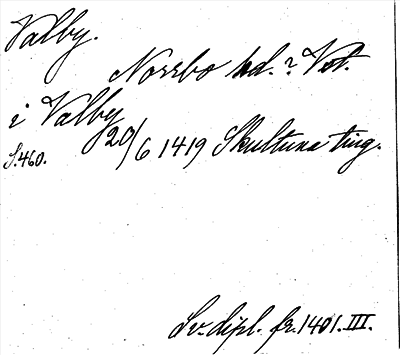 Valby.
Norrbo hd. ? Vstm.
i Valby
20/6 1419 Skultuna ting.
S. 460.
Sv. dipl. fr. 1401. III.